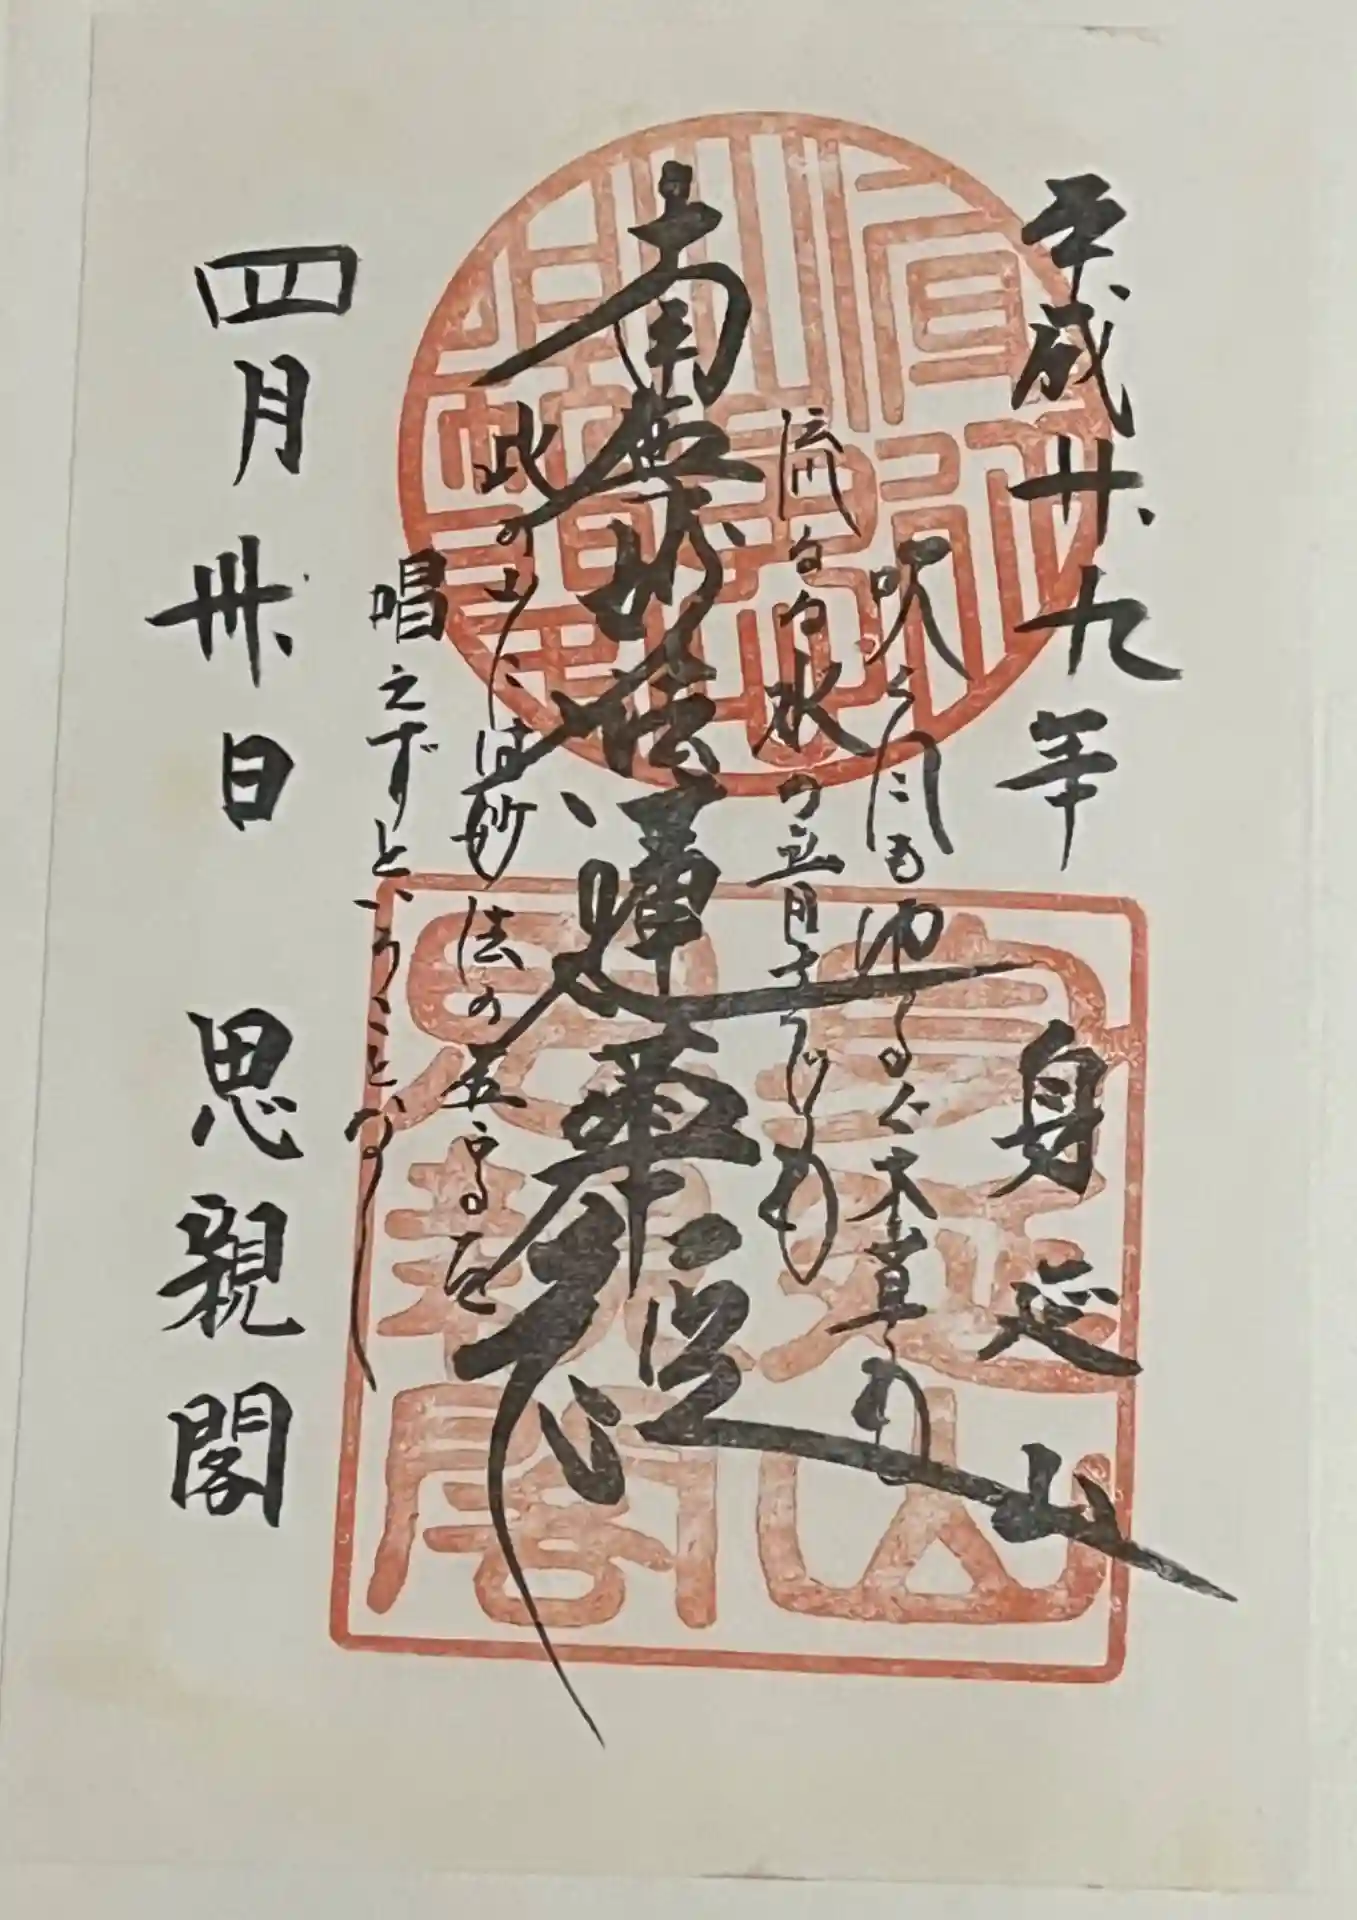 平成廿九年 身延山
吹く風も ゆるぐ木草も
流るる水の音までも
南無妙法蓮華経
此の山には妙法の五字を
唱えずということなし
四月卅日 思親閣
身延山
思親閣